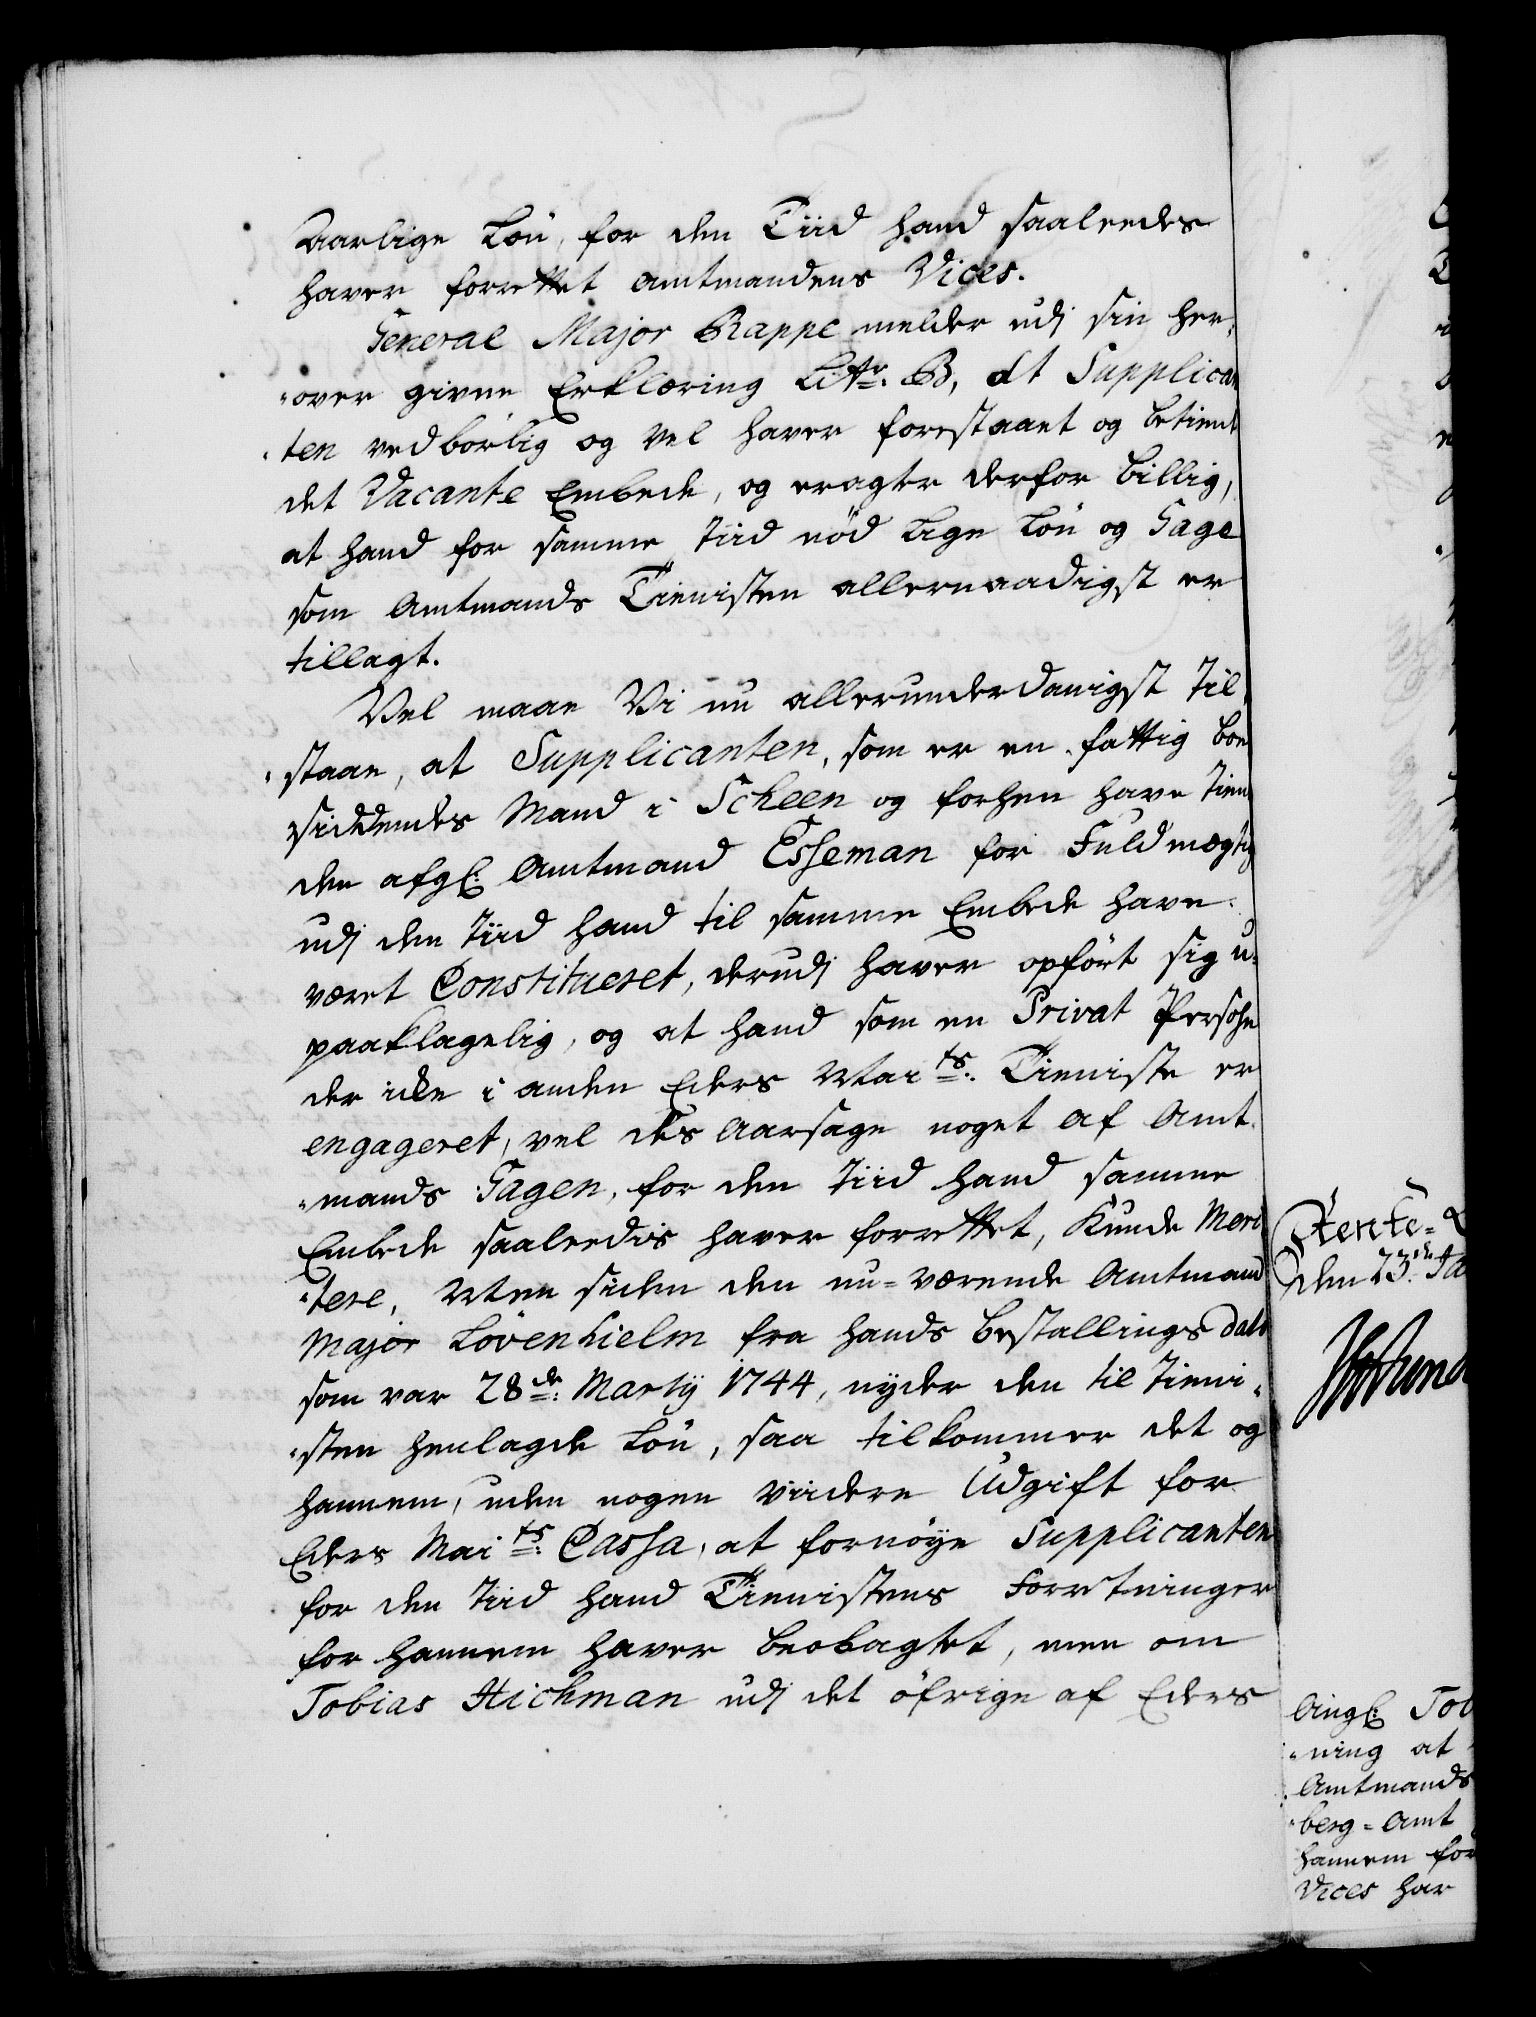 Aarlige Løn, for den Tiid hand saaledes
haver forrettet Amtmandens Vices.
General Major Rappe melder udj sin her-
over givne Erklæring Littr: B, at Supplican
ten vedbørlig og vel haver forestaaet og betient
det Vacante Embede, og eragter derfor billig,
at hand for samme Tiid nød lige Løn og Gage
som Amtmands Tienisten allernaadigst er
tillagt.
Vel maae Vi nu allerunderdanigst til-
staae, at Supplicanten, som er en fattig boe
siddendes Mand i Scheen og forhen have tient
den afg: Amtmand Esseman for Fuldmægtig
udj den Tiid hand til samme Embede have
været Constitueret, derudj haver opført sig u-
paaklagelig, og at hand som en Privat Persohn
der icke i anden Eders Mai ts: Tieniste er
engageret, vel des Aarsage noget af Amt-
mands Gagen, for den Tiid hand samme
Embede saaledis haver forrettet, kunde Meri
tere, Men siden den nu-værende Amtmand
Major Lövenhielm fra hands Bestallings dato
som var 28de: Martij 1744, nyder den til Tieni-
sten henlagde Løn, saa tilkommer det og
hannem, uden nogen viidere Udgift for
Eders Mai ts: Cassa, at fornøye Supplicanten
for den Tiid hand Tienistens Forretninger
for hannem haver beobagtet, men om
Tobias Hichman udj det øfrige af Eders
Rente-
den 23de Ja
Ang: Tob
ning at
Amtmands
berg-Amt
hannem for
Vices har